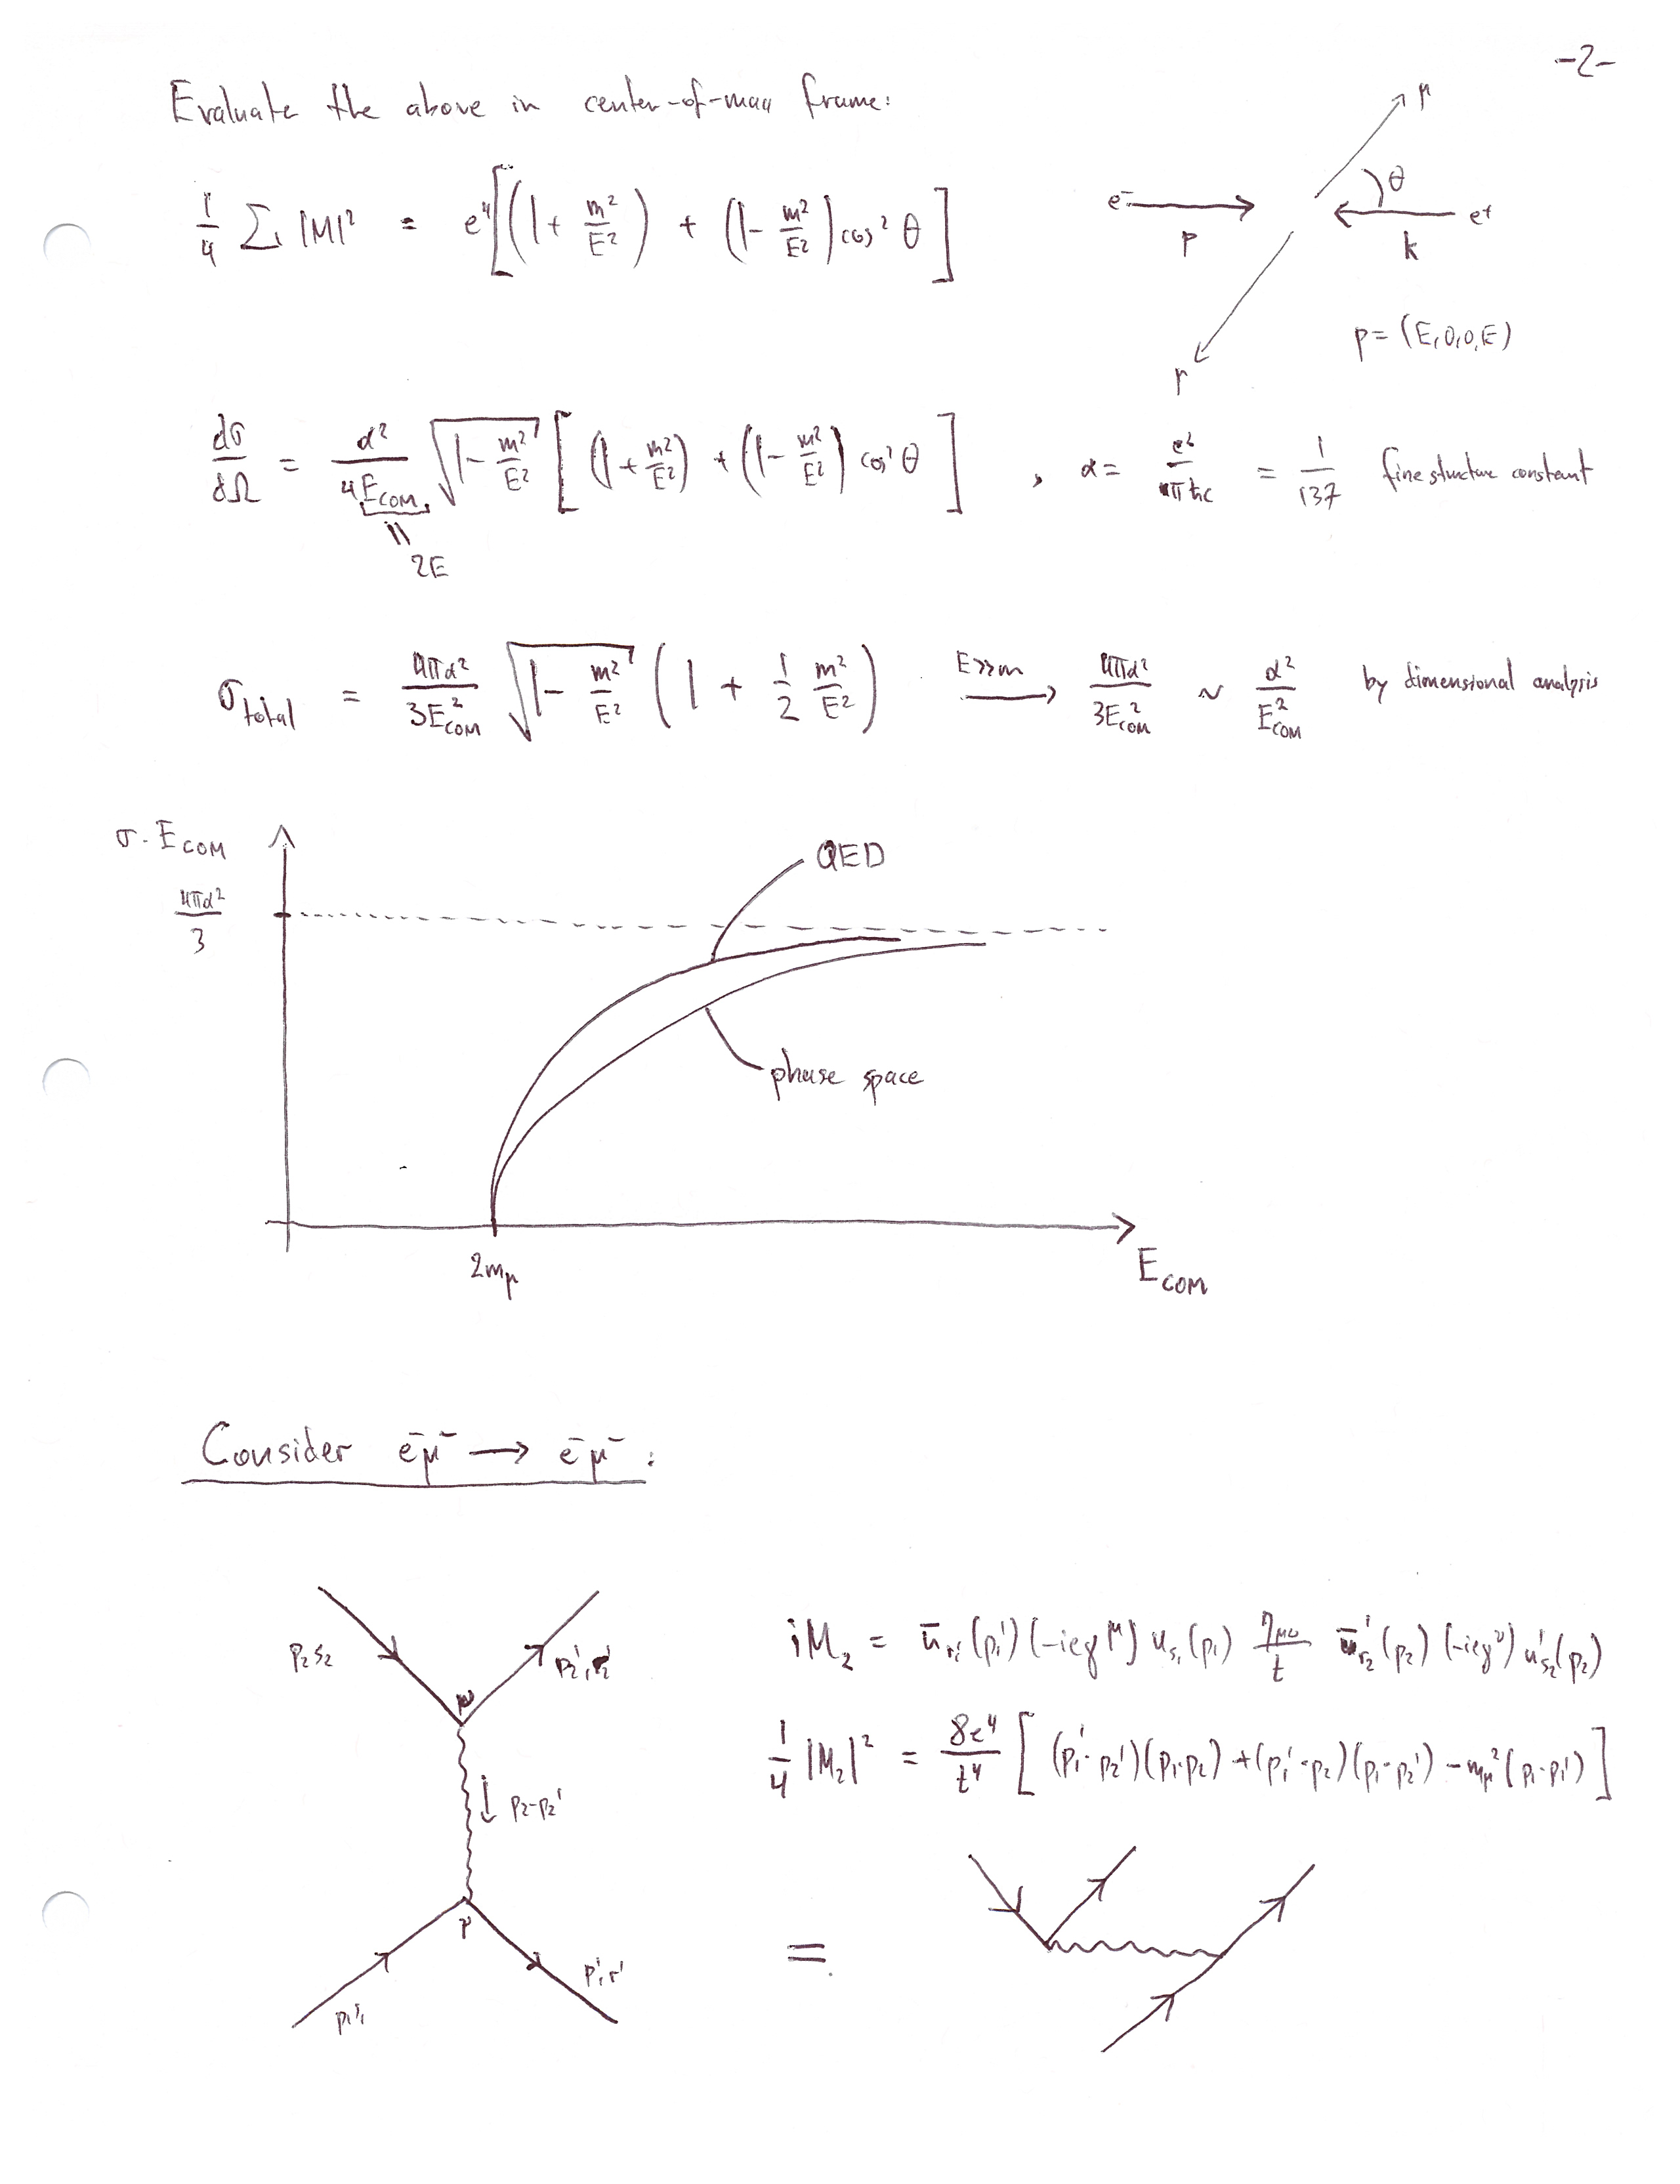 -2-
Evaluate the above in center-of-mass frame:
1/4 Σ |M|² = e⁴ [ (1 + m²/E²) + (1 - m²/E²) cos² θ ]
μ
θ
e⁻
p
k
e⁺
μ
p = (E,0,0,E)
dσ/dΩ = α²/4E_COM √(1 - m²/E²) [ (1 + m²/E²) + (1 - m²/E²) cos² θ ] , α = e²/4πħc = 1/137 fine structure constant
2E
σ_total = 4πα²/3E²_COM √(1 - m²/E²) (1 + 1/2 m²/E²) E>>m → 4πα²/3E²_COM ~ α²/E²_COM by dimensional analysis
σ · E_COM
QED
4πα²/3
phase space
2m_μ
E_COM
Consider e⁻μ⁻ → e⁻μ⁻ :
p₂s₂
p₂', r₂'
ν
p₂-p₂'
μ
p₁s₁
p₁'r'
iM₂ = ū_r₁'(p₁') (-ieγ^μ) u_s₁(p₁) η_μν/t ū'_r₂'(p₂) (-ieγ^ν) u'_s₂(p₂)
1/4 |M₂|² = 8e⁴/t⁴ [ (p₁'·p₂')(p₁·p₂) + (p₁'·p₂)(p₁·p₂') - m_μ²(p₁·p₁') ]
=